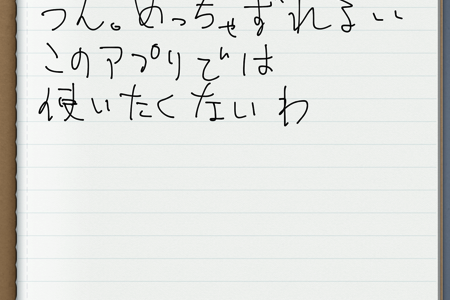 うん。めっちゃずれる
このアプリでは
使いたくないわ